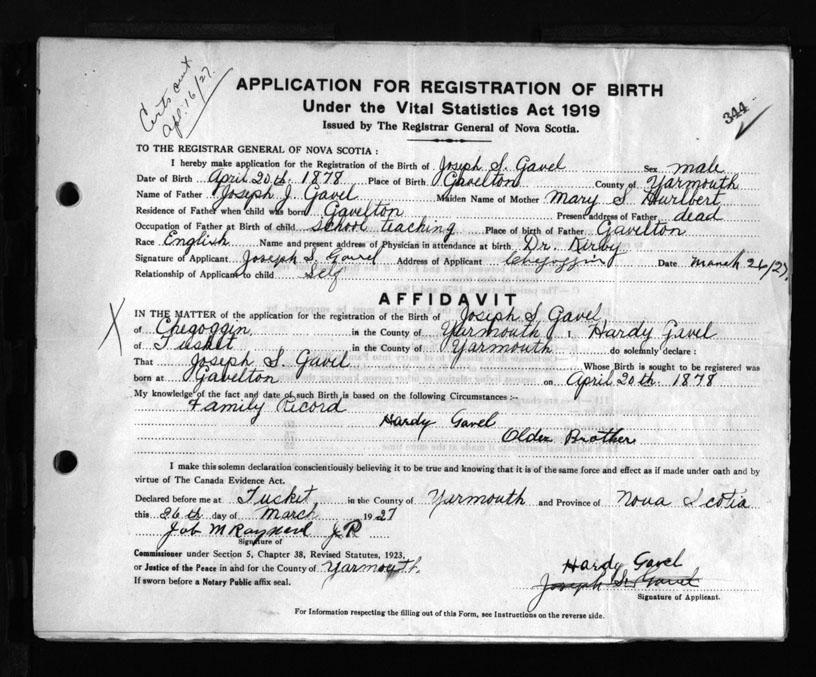 Certs sent
Apl. 16/27.
APPLICATION FOR REGISTRATION OF BIRTH
344
Under the Vital Statistics Act 1919
Issued by The Registrar General of Nova Scotia.
TO THE REGISTRAR GENERAL OF NOVA SCOTIA:
I hereby make application for the Registration of the Birth of Joseph S. Gavel Sex male
Date of Birth April 20th. 1878 Place of Birth Gavelton County of Yarmouth
Name of Father Joseph J. Gavel Maiden Name of Mother Mary S. Hurlbert
Residence of Father when child was born Gavelton Present address of Father dead
Occupation of Father at Birth of child School teaching Place of birth of Father Gavelton
Race English Name and present address of Physician in attendance at birth Dr. Kirby
Signature of Applicant Joseph S. Gavel Address of Applicant Chegoggin Date March 26/27.
Relationship of Applicant to child Self
AFFIDAVIT
IN THE MATTER of the application for the registration of the Birth of Joseph S. Gavel
X of Chegoggin in the County of Yarmouth I, Hardy Gavel
of Tusket in the County of Yarmouth do solemnly declare:
That Joseph S. Gavel Whose Birth is sought to be registered was
born at Gavelton on April 20th. 1878
My knowledge of the fact and date of such Birth is based on the following Circumstances:-
Family Record
Hardy Gavel
Older Brother
I make this solemn declaration conscientiously believing it to be true and knowing that it is of the same force and effect as if made under oath and by
virtue of The Canada Evidence Act.
Declared before me at Tusket in the County of Yarmouth and Province of Nova Scotia
this 26th day of March 1927
Job M JP
Signature of
Commissioner under Section 5, Chapter 38, Revised Statutes, 1923,
or Justice of the Peace in and for the County of Yarmouth.
Hardy Gavel
If sworn before a Notary Public affix seal.
Joseph S. Gavel
Signature of Applicant.
For Information respecting the filling out of this Form, see Instructions on the reverse side.